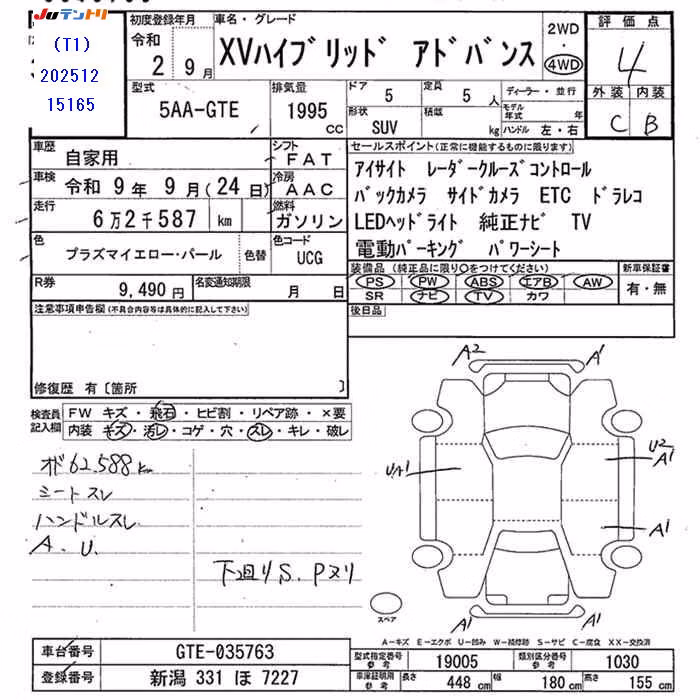 Juテントリ
(T1)
202512
15165
初度登録年月 車名・グレード
令和 2年 9月 XVハイブリッド アドバンス
2WD・4WD
評価点
4
外装 内装
C B
型式 排気量 ドア 定員 ディーラー・並行
5AA-GTE 1995 cc 5 5 人
形状 積載 モデル年式 年
SUV kg ハンドル 左・右
車歴 自家用 シフト FAT
車検 令和 9年 9月(24日) 冷房 AAC
走行 6万2千587 km 燃料 ガソリン
色 プラズマイエロー・パール 色替 色コード UCG
R券 9,490円 名変通知期限 月 日
セールスポイント(正常に機能するものに限ります)
アイサイト レーダークルーズコントロール
バックカメラ サイドカメラ ETC ドラレコ
LEDヘッドライト 純正ナビ TV
電動パーキング パワーシート
装備品(純正品に限り○をつけてください) 新車保証書
PS PW ABS エアB AW 有・無
SR ナビ TV カワ
後日品
注意事項申告欄(不具合内容等は具体的に記入して下さい)
修復歴 有〔箇所 〕
検査員記入欄 FW キズ・飛石・ヒビ割・リペア跡・×要
内装 キズ・汚レ・コゲ・穴・スレ・キレ・破レ
オド62.588km
シートスレ
ハンドルスレ
A.U.
下廻りS.Pヌリ
A2 A1
U2
A1
U/A1
A1
A1 A1
スペア
A-キズ E-エクボ U-凹み W-補修跡 S-サビ C-腐食 XX-交換済
車台番号 GTE-035763
登録番号 新潟 331 ほ 7227
型式指定番号 参考 19005 類別区分番号 参考 1030
車検証明書 参考 長さ 448 cm 幅 180 cm 高さ 155 cm